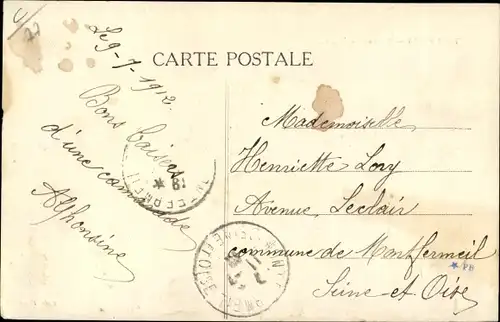 CARTE POSTALE
Le 9-7-1912.
Bons baisers
d'une camarade
Alphonsine
Mademoiselle
Henriette Lory
Avenue Leclair
commune de Montfermeil
Seine et Oise